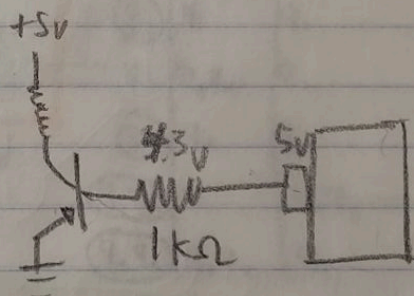 +5v
4.3v
5v
1kΩ